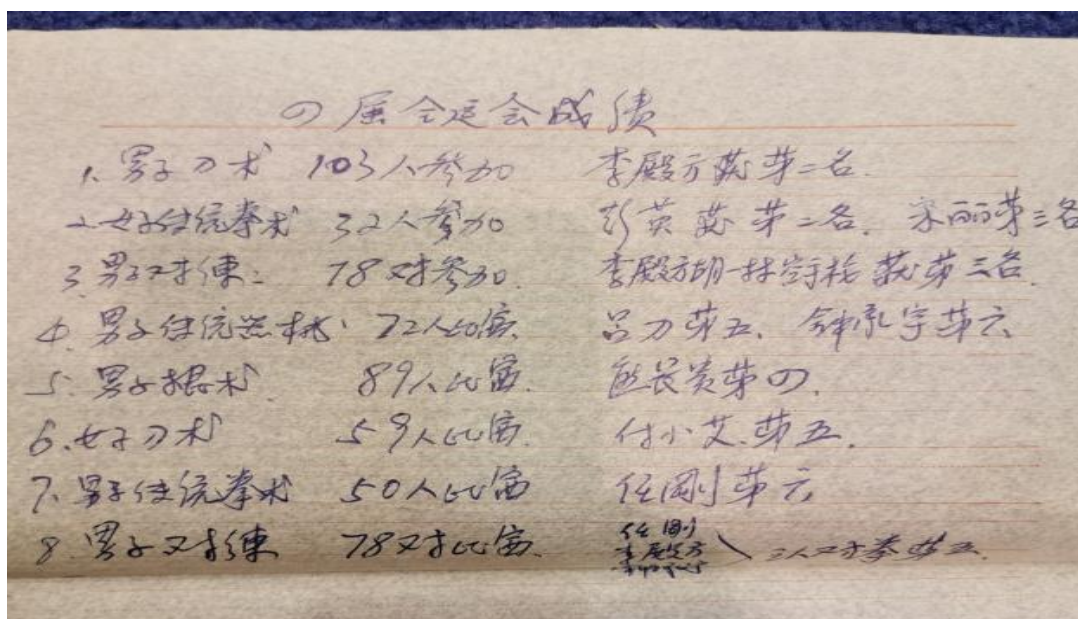 四届全运会成绩
1. 男子刀术 103人参加 李殿方获第二名.
2. 女子传统拳术 32人参加 彭英获第二名. 宋丽第三名
3. 男子对練. 78对参加. 李殿方胡一林空手枪获第三名.
4. 男子传统器械. 72人比赛. 吕刀第五. 钟永宇第六
5. 男子棍术. 89人比赛. 熊长贵第四.
6. 女子刀术 59人比赛. 付小艾.第五.
7. 男子传统拳术 50人比赛 任刚第六
8. 男子对練 78对比赛. 任刚
李殿方
三人对拳第五.